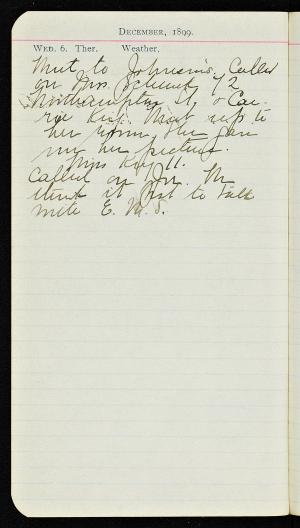 December, 1899.
Wed. 6. Ther. Weather.
Went to Johnson's. Called
on Mrs. 42
Northampton St, & Car-
rie King. Went up to
her room, she gave
me her picture.
Miss King 11.
Called on Jr. He
think it best to talk
with E. M. S.